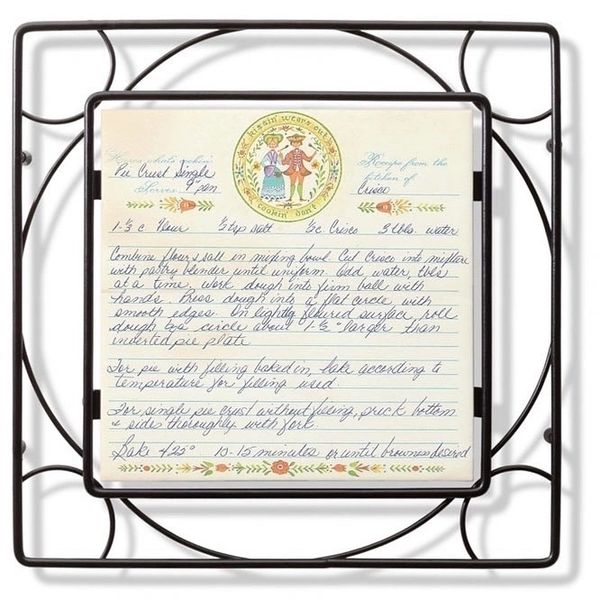 kissin' wears out
cookin' don't
Here's what's cookin'
Pie Crust Single
Serves 9" pan
Recipe from the
kitchen of
Crisco
1-⅓ c Flour ½ tsp salt ½c Crisco 3 tbls. water
Combine flour & salt in mixing bowl. Cut Crisco into mixture
with pastry blender until uniform. Add water, tbls
at a time, work dough into firm ball with
hands. Press dough into a flat circle, with
smooth edges. On lightly floured surface, roll
dough to a circle about 1-½" larger than
inverted pie plate.
For pie with filling baked in, bake according to
temperature for filling used.
For single pie crust without filling, prick bottom
& sides thoroughly with fork.
Bake 425° 10-15 minutes or until brownness desired